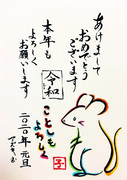 あけまして
おめでとう
ございます
本年も
よろしく
お願いします
令和
ことしも
よろしく
二〇二〇年 元旦
子